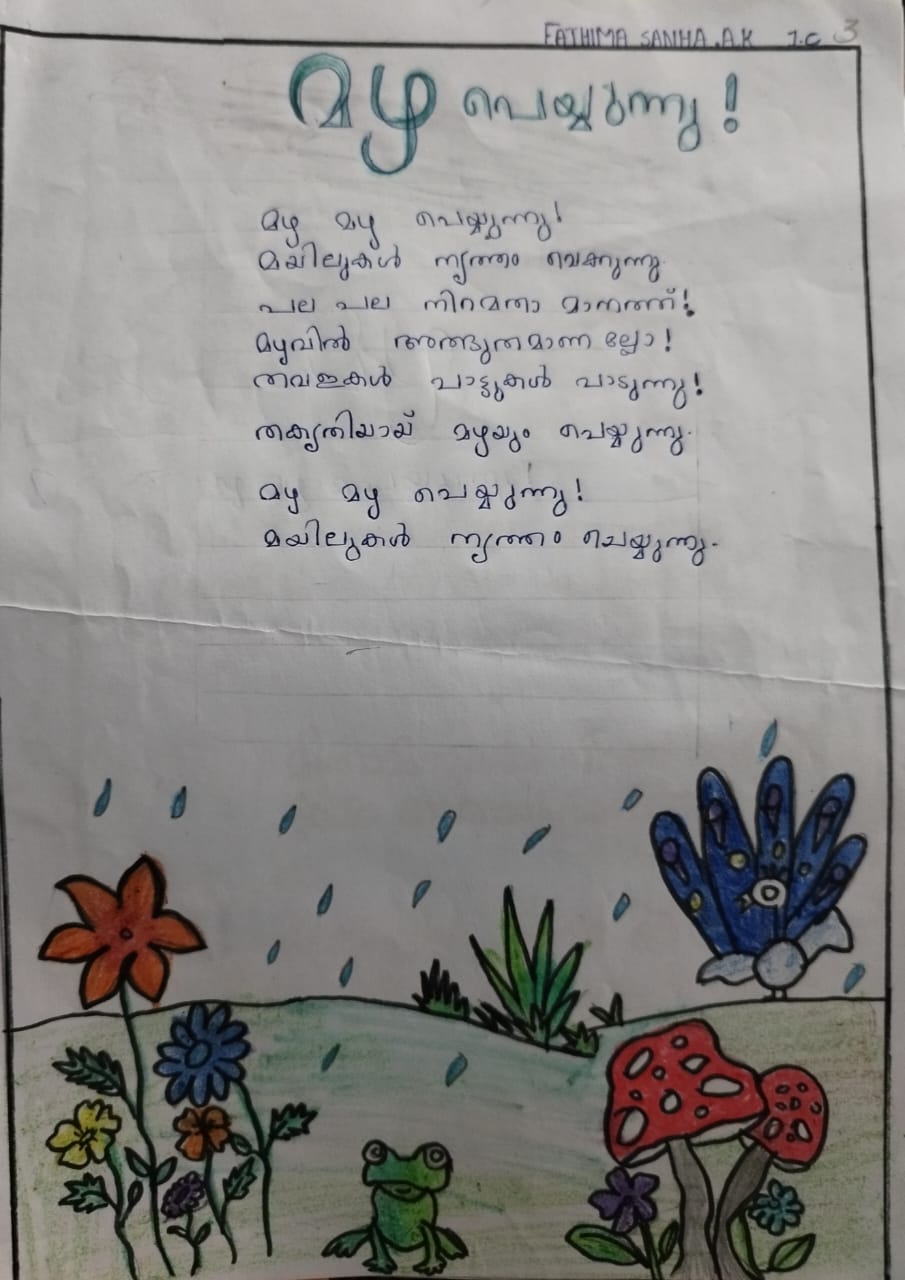 FATHIMA SANHA.A.K 1.C 3
മഴ പെയ്യുന്നു!
മഴ മഴ പെയ്യുന്നു!
മയിലുകൾ നൃത്തം വെക്കുന്നു.
പല പല നിറമതാ മാനത്ത്!
മഴവിൽ അത്ഭുതമാണല്ലോ!
തവളകൾ പാട്ടുകൾ പാടുന്നു!
തകൃതിയായ് മഴയും പെയ്യുന്നു.
മഴ മഴ പെയ്യുന്നു!
മയിലുകൾ നൃത്തം ചെയ്യുന്നു.